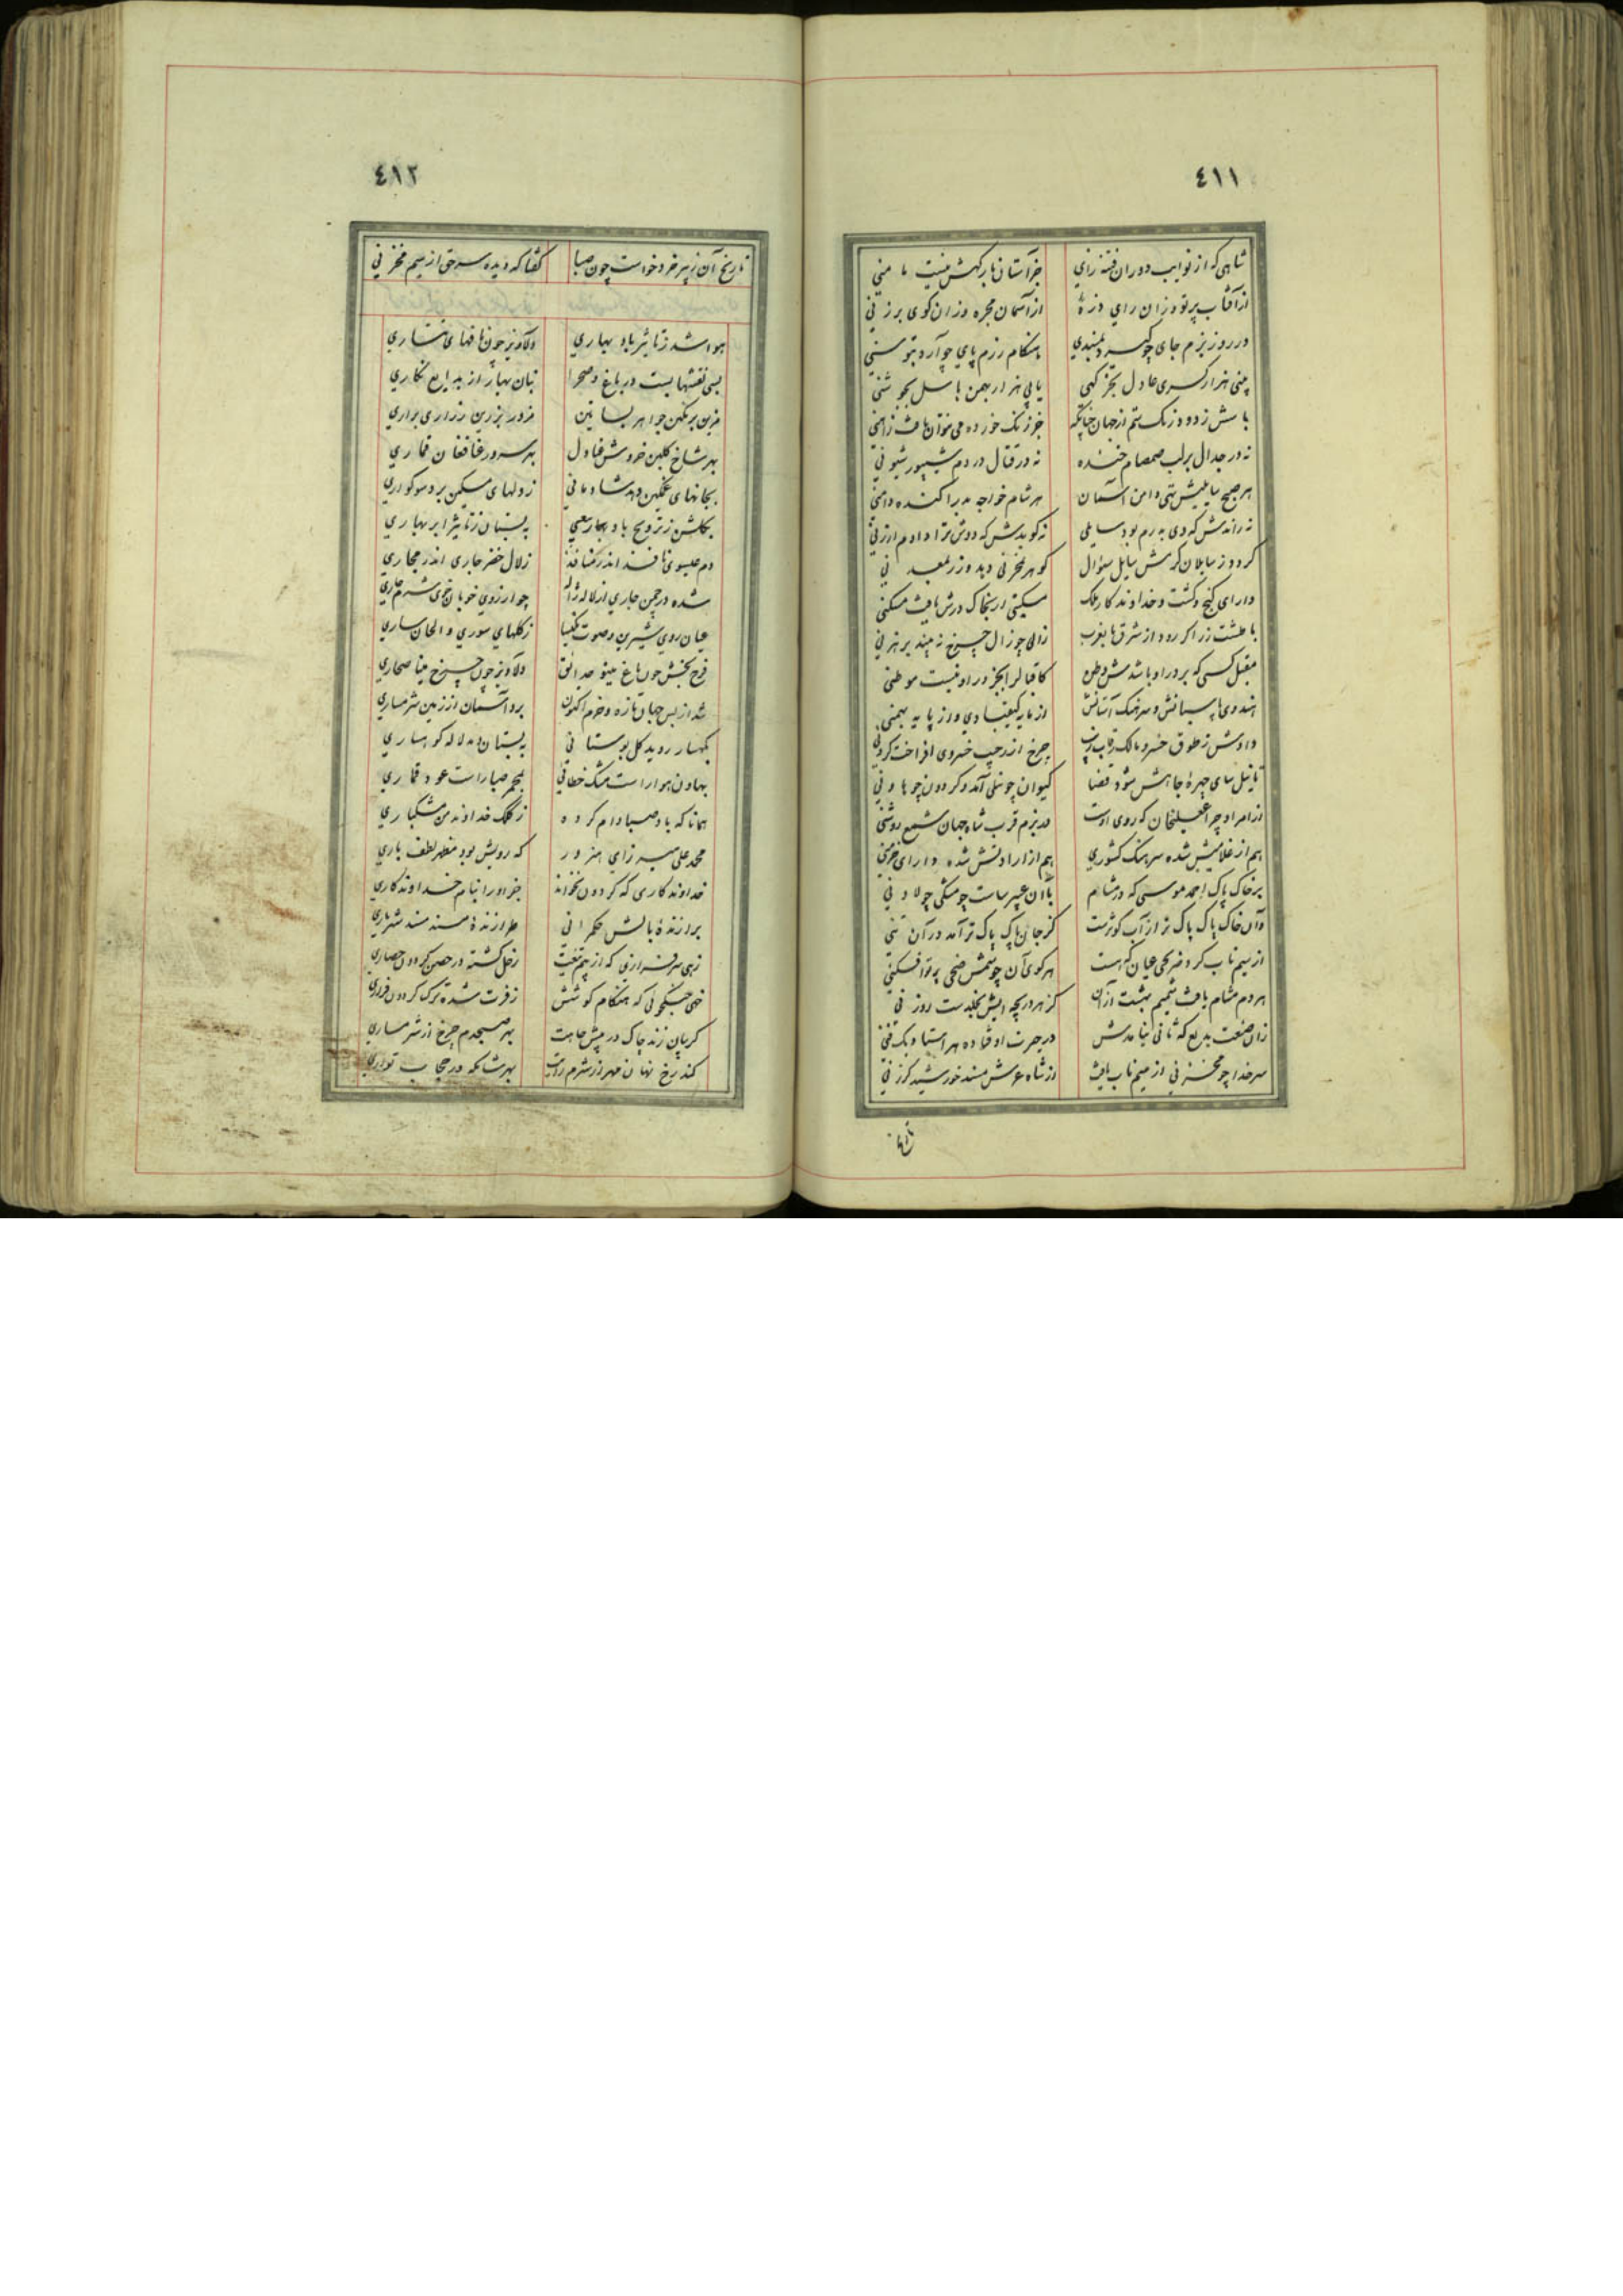 ٤١١
شاهی که از نوایب دوران فتنه زای جز آستان بارگهش نیست مأمنی
از آفتاب پرتو وزان رای ذرهٔ از آسمان مجره وزان کوی برزنی
در روز بزم جای چو گیرد به مسندی هنگام رزم پای چو آرد بتوسنی
بینی هزار کسری عادل بکمر کهی یابی هزار بهمن باسل بجوشنی
نه در جدال بر لب صمصام خنده نه در قتال در دم شیپور شیونی
هر صبح سایلیش تهی دامن آستان هر شام خواجه بدر آکنده دامنی
نه راندش که دی به رم بود سایلی نه گویدش که دوش ترا دادم ارزنی
گردد ز سایلان کرمش سایل سئوال گوهر بمخزنی دهد و زر بمعدنی
دارای گنج و گشت و خداوند کار ملک مسکینی ار بخاک درش یافت مسکنی
با طشت زر اگر رود از شرق تا بغرب زالی چو زال چرخ نه بیند برهزنی
مقبل کسی که بر در او باشدش وطن کاقبال را بجز در او نیست موطنی
هندوی پاسبانش و سرهنگ آستانش از مایه کیقبادی و از پایه بهمنی
دادش ز طوق خسرو مالک رقاب چرخ از جیب خسروی افراخت گردنی
تا نیل سای چهرهٔ جاهش شود قضا کیوان چو نیلی آمد و گردون چو هاونی
از امر او چراغعلیخان که روی اوست در بزم قرب شاه جهان شمع روشنی
هم از غلامیش شده سرهنگ کشوری هم از ارادتش شده دارای
بر خاک پاک احمد موسی که در مشام با آن عبیر ساست چو مشکی چو لادنی
وآن خاک پاک پاک تر از آب کوثرست کز جان پاک پاک تر آمد در آن تنی
از سیم ناب کرد ضریحی عیان که هست هر کوی آن چو شمس ضحی پرتو افکنی
هر دم مشام یافت شمیم بهشت از آن کز هر دریچه ایش بخلدست روزنی
زان صنعت بدیع که ثانی نیامدش در حیرت اوفتاده هر استاد یک فنی
سر خدا چو مخزنی از سیم ناب یافت از شاه عرش مسند خورشید گرزنی
تاریخ
٤١٢
تاریخ آن ز پیر خرد خواست چون صبا گفتا که دیده سر حق از سیم مخزنی
هوا شد ز تأثیر باد بهاری دلاویز چون نافهای تتاری
بسی نقشها بست در باغ و صحرا بنان بهار از بدایع نگاری
بهر شاخ گلبن خروش عنادل بهر سرو بر غافغان قماری
بجانهای غمگین دهد شادمانی ز دلهای مسکین برد سوگواری
بگلشن ز ترویح باد بهار ربیعی به بستان ز تأثیر ابر بهاری
دم عیسوی نافذ اندر منافذ زلال خضر جاری اندر مجاری
شده در چمن جاری از لاله ژاله چو از روی خوبان خوی شرم جاری
عیان روی شیرین و صوت نکیسا ز گلهای سوری و الحان ساری
فرح بخش چون باغ مینو حدایق دلاویز چون چرخ مینا صحاری
شد از بس جهان تازه و خرم اکنون برد آسمان از زمین شرمساری
بکهسار روید گل بوستانی به بستان دمد لاله کوهساری
بهاون هوا راست مشک خطائی بمجمر صبا راست عود قماری
همانا که باد صبا وام کرده ز کلک خداوند من مشکباری
محمد علی میرزای هنرور که رویش بود مظهر لطف باری
خداوندکاری که گردون نخواند جز او را بنام خداوندکاری
برازندهٔ بالش حکمرانی طرازندهٔ مسند شهریاری
زهی سرفرازی که از بیم تیغت زحل گشته در حصن گردون حصاری
خهی جنگجوئی که هنگام کوشش ز قرت شده ترک گردون فراری
گریبان زند چاک در پیش جاهت بهر صبحدم چرخ از شرمساری
کند رخ نهان مهر از شرم رایت بهر شامگه در حجاب تواری